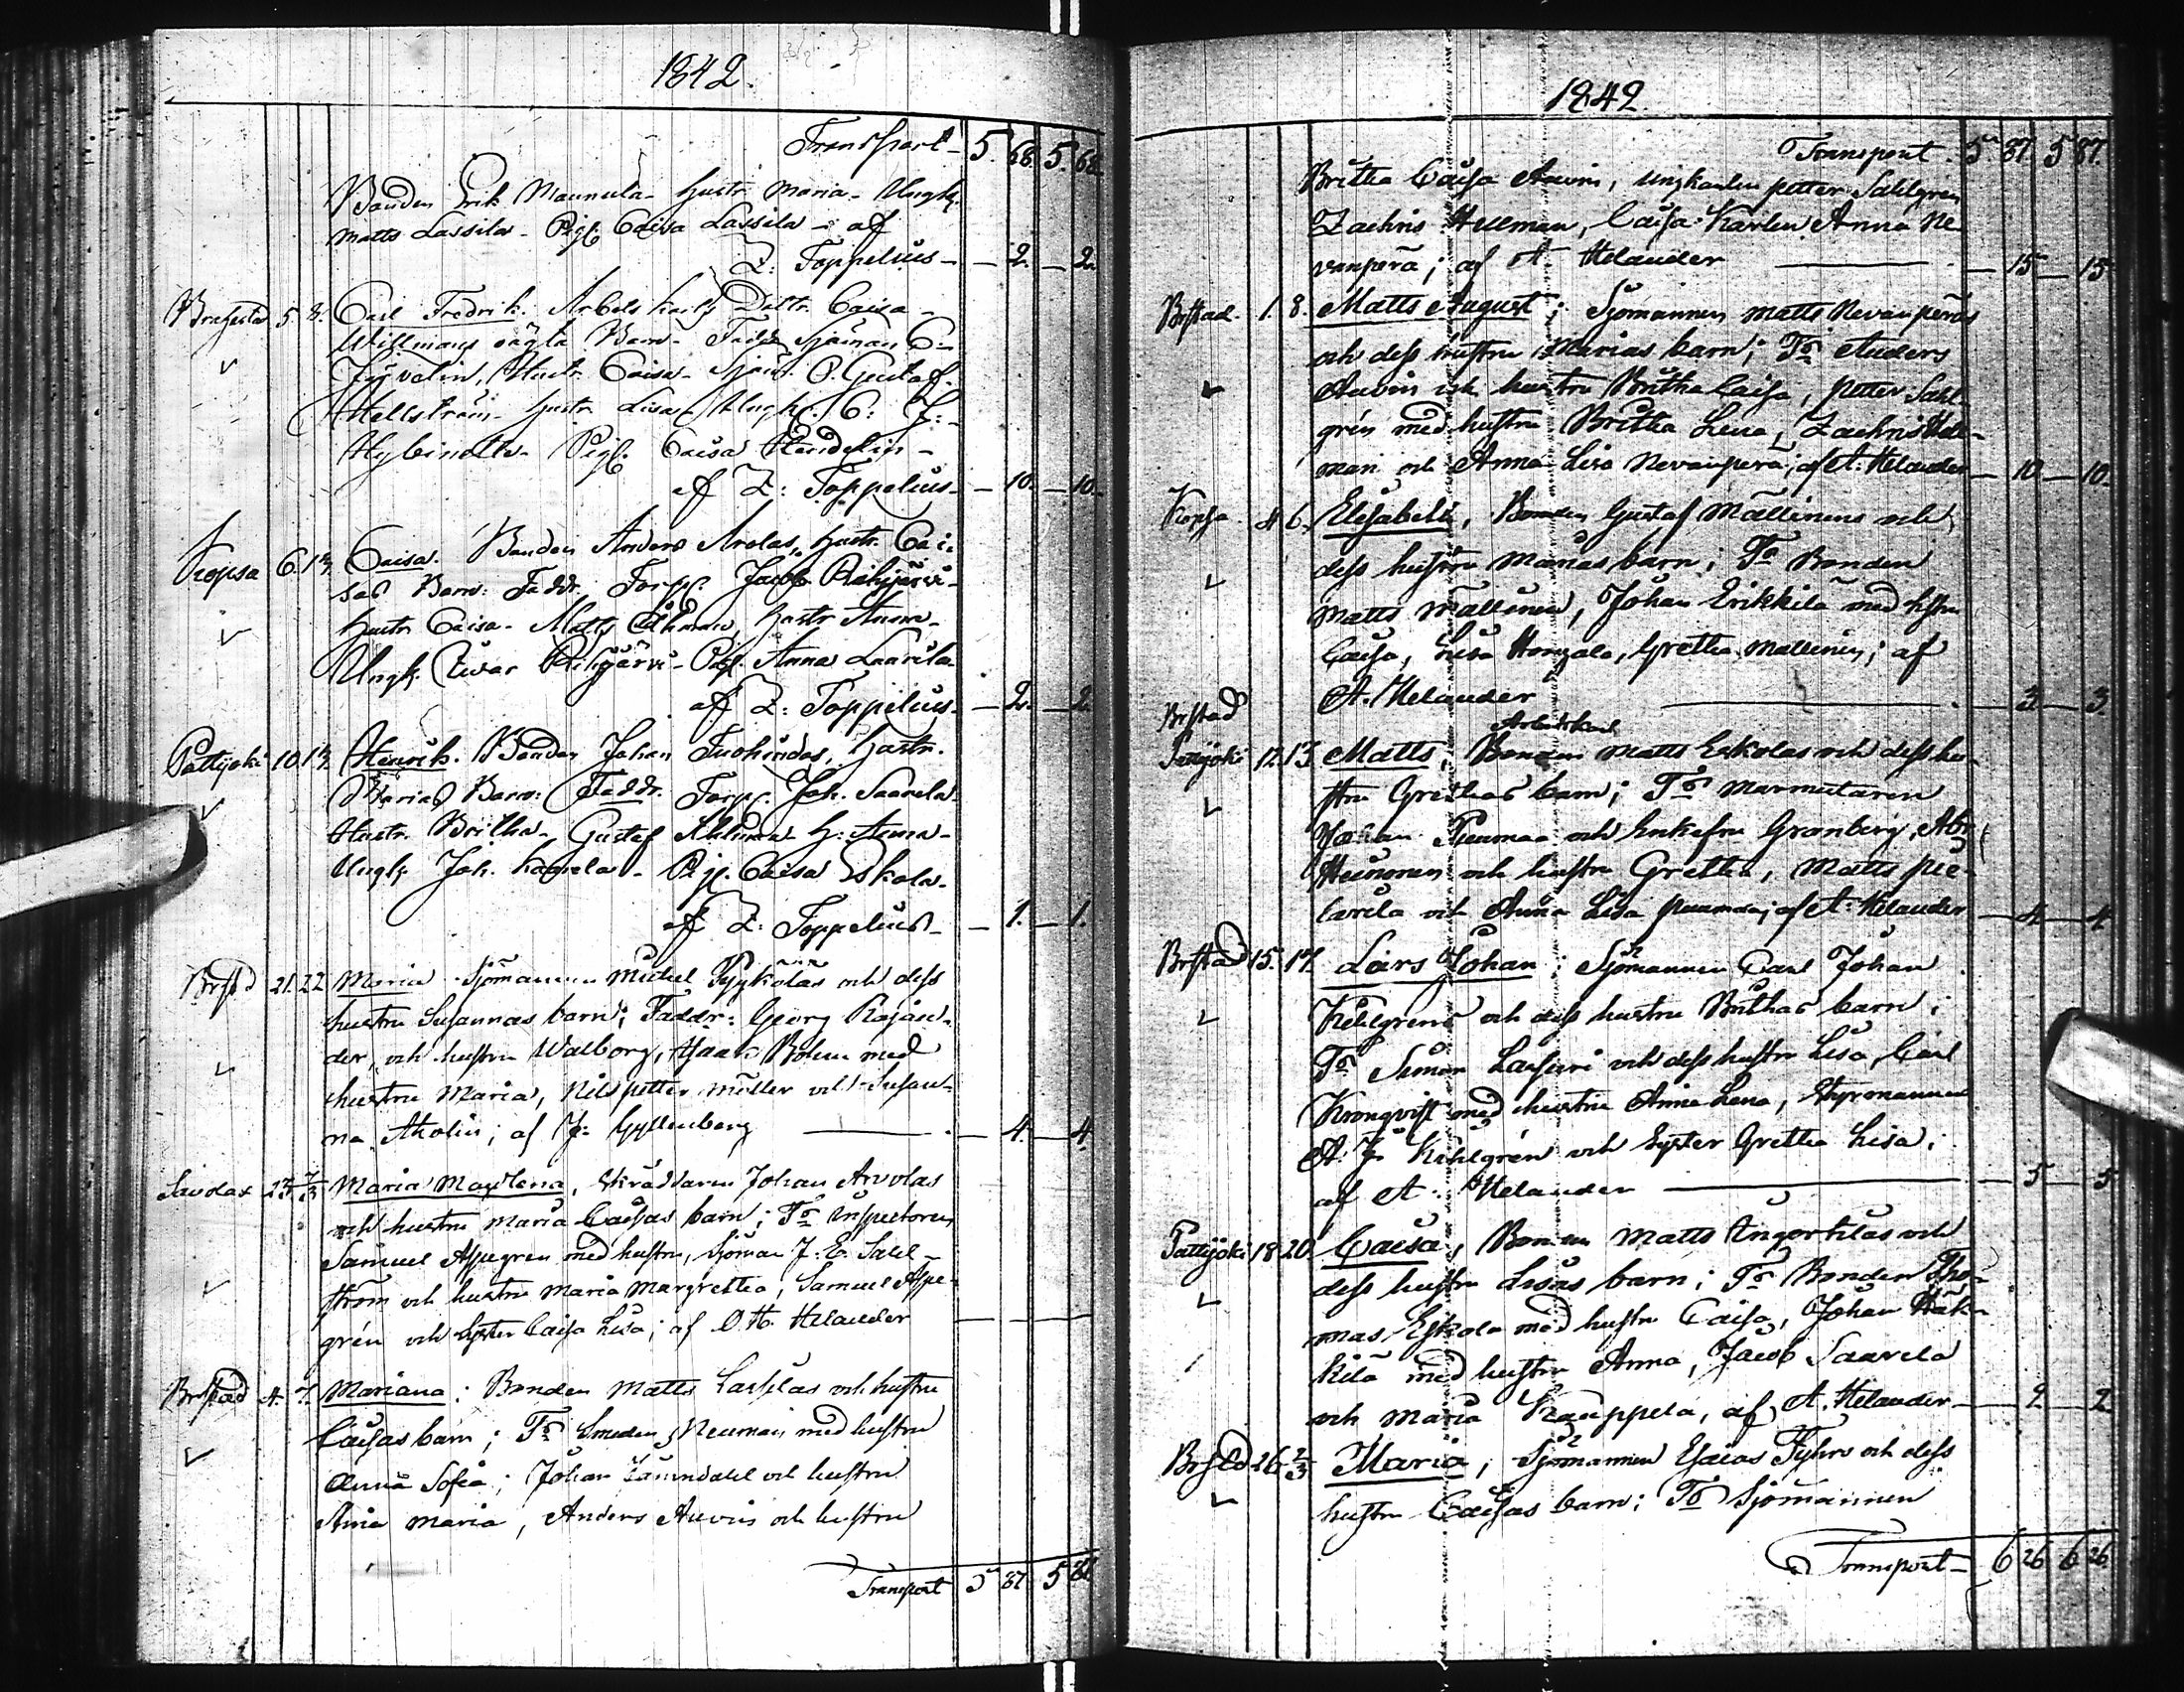 1842.
Transport - 5. 68. 5. 68.
Bonden Erik Mannula - Hustr. Maria - Ungk.
Matts Lassila - Pig. Caisa Lassila - af
Z: Toppelius - - 2. - 2.
Brahestad 5. 8. Carl Fredrik. Arbets karls Dottr. Caisa
Willmans oägta Barn. Faddr Sjöman C:
Hustr. Caisa - Sjöm. P. Gustaf.
Hellström - Hustr. Lisa - Ungk. C: J:
Pig. Caisa Hendelin -
af Z: Toppelius - - 10. - 10.
Kopsa 6. 13. Caisa. Bonden Anders Arolas, Hustr. Cai-
sas Barn: Faddr. Torp. Jacob Pihijärvi -
Hustr Caisa - Matts Öhman, Hustr Anna -
Ungk. Iwar Pihijärvi - Pig. Anna Laurila
af Z: Toppelius. - 2. - 2.
Pattijoki 10. 13. Henrik. Bonden Johan Tuohindos, Hustr.
Marias Barn: Faddr. Torp. Joh. Saarela
Hustr. Britha - Gustaf H: Anna -
Ungk Joh. - Pig. Caisa Eskola -
af Z: Toppelius - - 1. - 1.
Brstd 21. 22 Maria Sjömannen Michel Pyykoläs och dess
hustru Susannas barn; Faddr: Georg Rajan-
der, och hustru Walborg, Isaak Bohm med
hustru Maria, Nils petter Möller och Susan-
na Aholin; af J: Gyllenberg - 4. - 4.
Savolax 25 7/3 Maria Magdlena, Skräddaren Johan Arvolas
och hustru Maria Caisas barn; Fr Inspectoren
Samuel Aspegren med hustru, Sjöman J: E. Sahl-
ström och hustru Maria Margretha, Samuel Aspe-
grén och Syster Caisa Lisa; af Helander - -
Brstad 4. 7. Mariana; Bonden Matts Lassilas och hustru
Caisas barn; Fr Smeden Neuman med hustru
Anna Sofia; Johan och hustru
Anna Maria, Anders Auvin och hustru
Transport 5 87 5 87
1842.
Transport. 5 87. 5 87.
Britha Caisa Auvin, ungkarlen petter Sahlgren
Zachris Hellman, Caisa Karlen Anna Ne-
vanperä; af A Helander - 15 - 15
Brstad. 1. 8. Matts August; Sjömannen Matts Nevanperäs
och dess hustru Marias barn; Fr Anders
Auvin och hustru Britha Caisa, petter Sahl-
grén med hustru Britha Lena, Zachris Hell-
man och Anna Lisa Nevanpera; af A: Helander - 10 - 10.
Kopsa 4 6. Elisabeth, Bonden Gustaf Mällinens och
dess hustru Marias barn; Fr Bonden
Matts Mällinen, Johan Erikkilä med hstru
Caisa, Lisa Hongala, Gretha Mällinen; af
A. Helander - 3 - 3.
Brstad
Arbetskarl
Pattijoki 12. 13. Matts, Bonden Matts Eskolas och dess hu-
stru Grethas barn; Fr Murmästaren
Johan och Enkefru Granberg, Abr:
Heinonen och hustru Gretha, Matts pie-
tarila och Anna Lisa; af A: Helander - 4 - 4
Brstad 15. 17. Lars Johan; Sjömannen Carl Johan
Kihlgrens och dess hustru Brithas barn;
Fr Simon Lassuri och dess hustru Lisa, Carl
Kronqvist med hustru Anna Lena, Styrmannen
A. J. Kihlgrén och Syster Gretha Lisa;
af A: Helander - 5 - 5
Pattijoki 18 20. Caisa, Bonden Matts Ungertilas och
dess hustru Lisas barn; Fr Bonden Tho-
mas Eskola med hustru Caisa, Johan Häk-
kilä med hustru Anna, Jacob Saarela
och Maria Kauppela, af A. Helander - 2 - 2
Brstd 26 2/3 Maria, Sjömannen Esaias Fyhrs och dess
hustru Caisas barn; Fr Sjömannen
Transport - 6 26 6 26